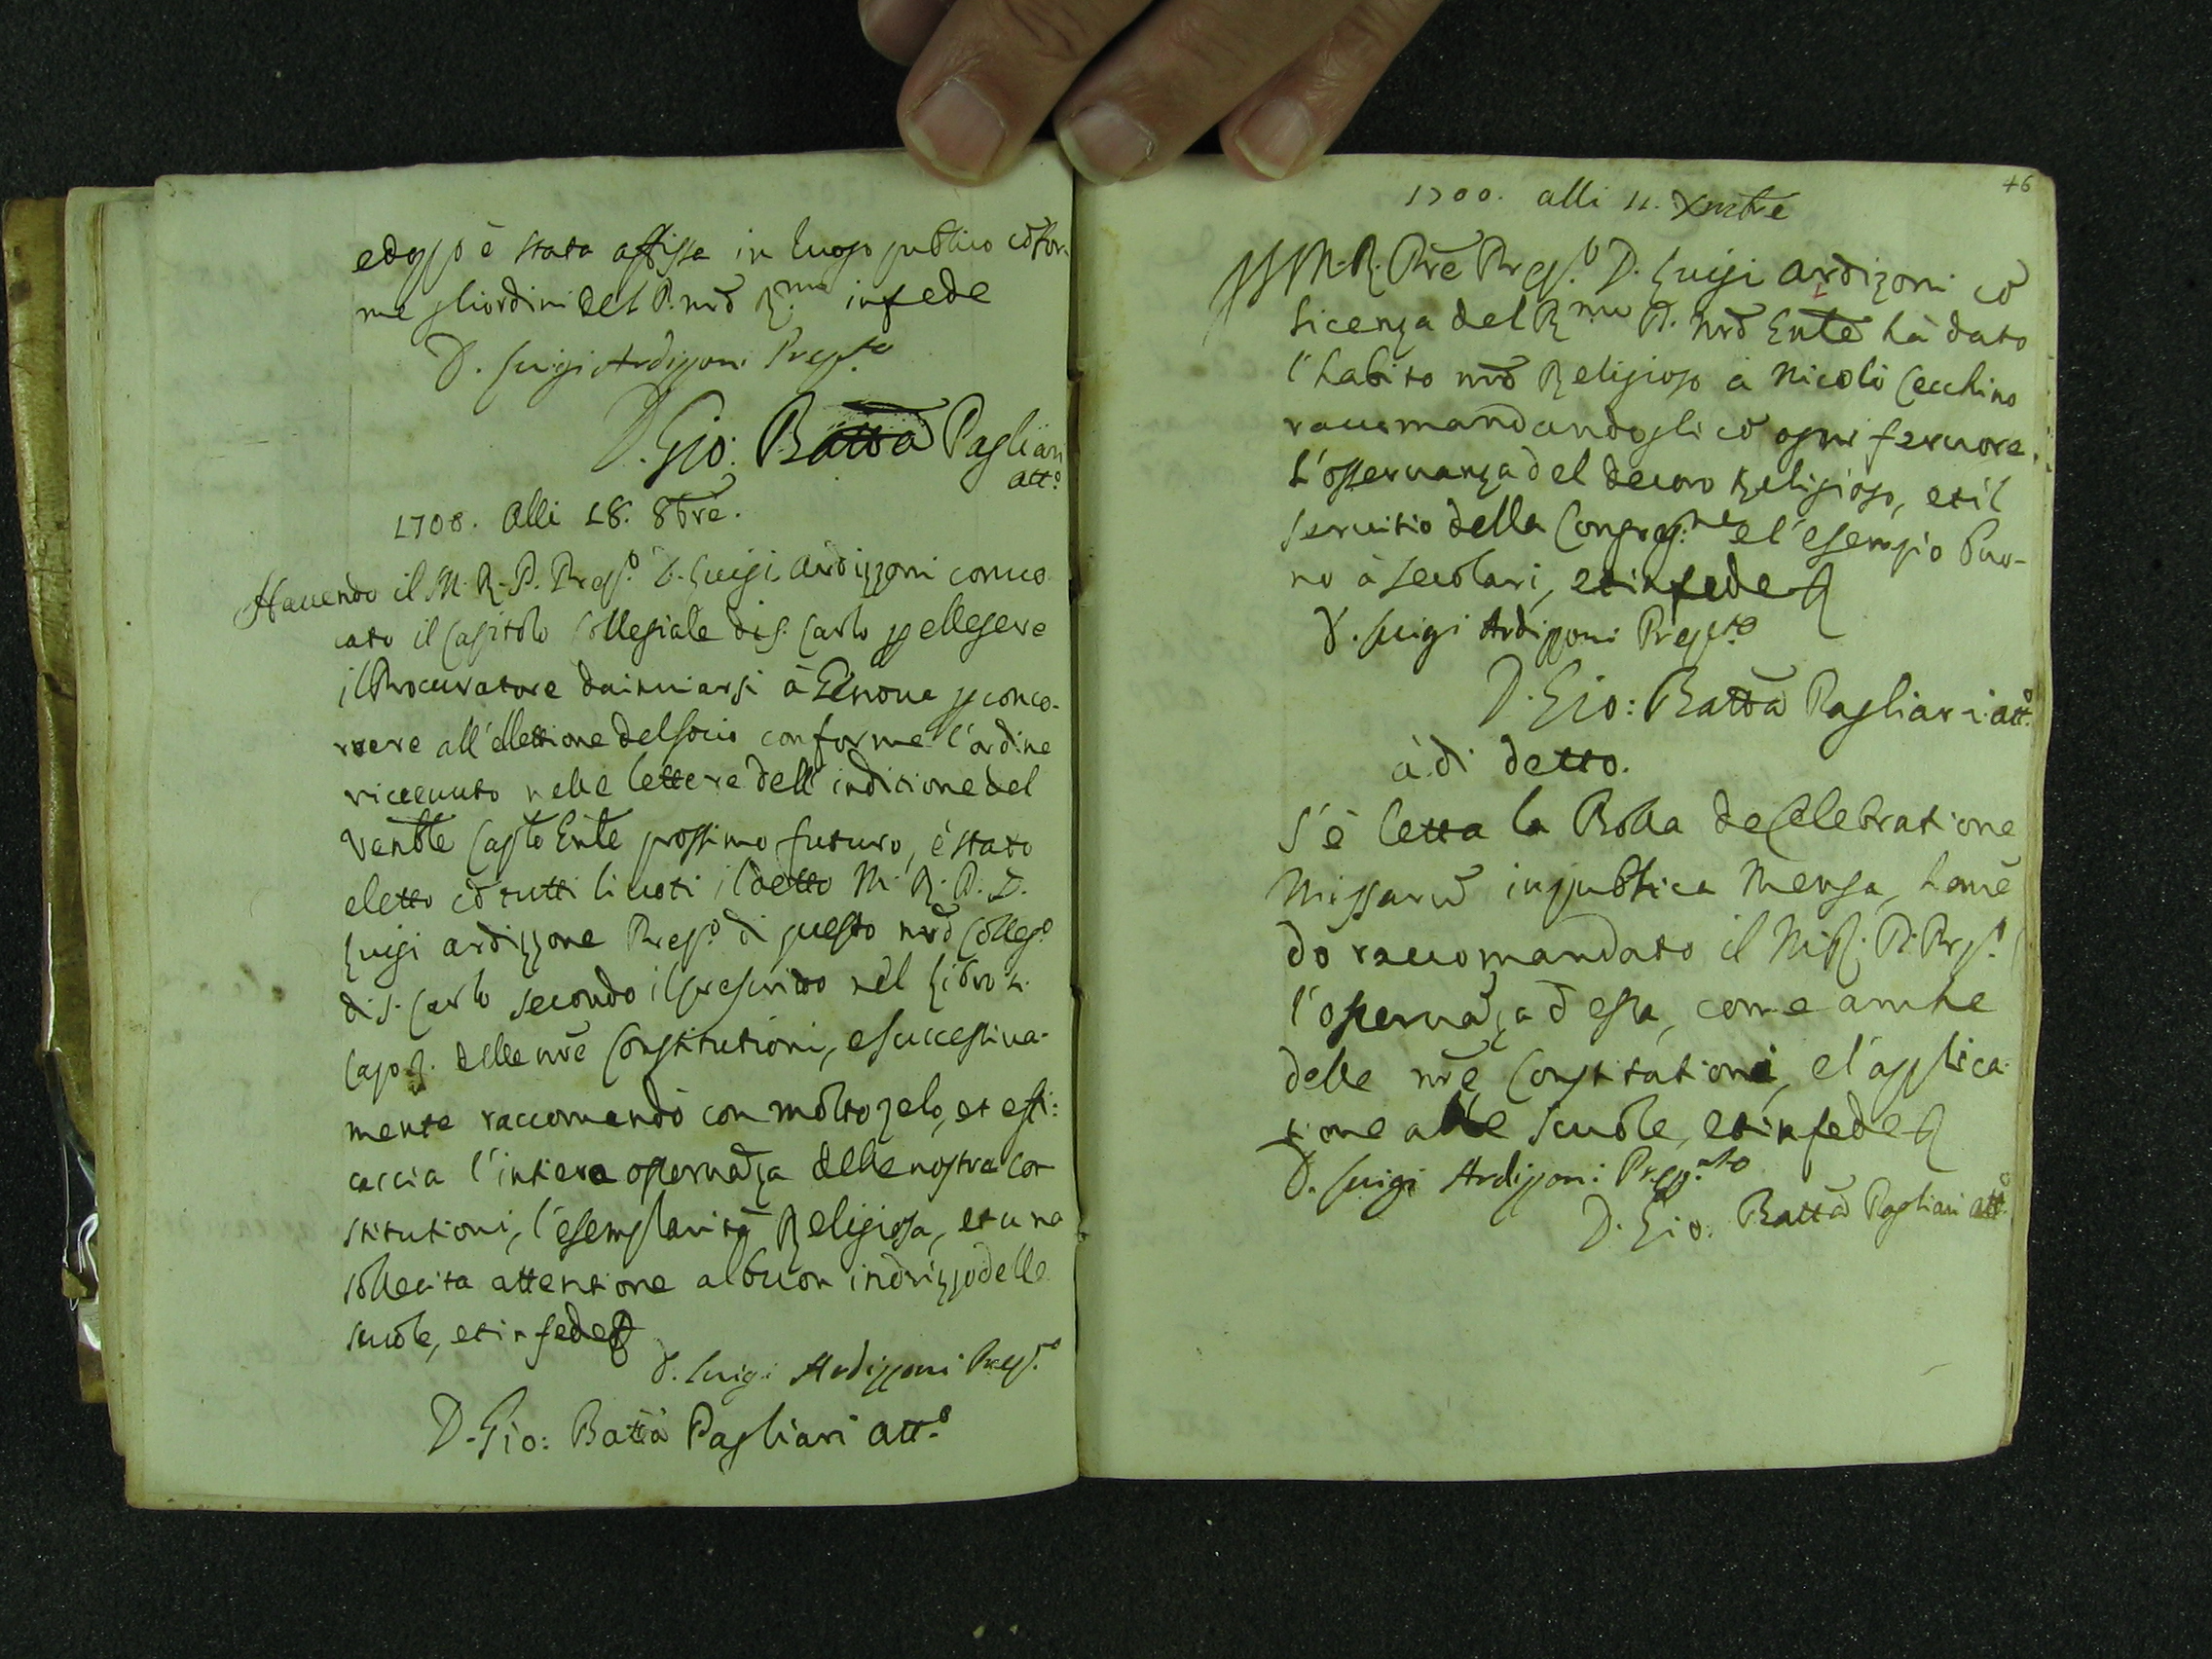 e dopo è stata affissa in luogo publico cõfor-
me gliordini del P. nrõ R.mo in fede
D. Luigi Ardizzoni Prep.to
D. Gio: Battã Pagliari
att.º
1700. Alli 18. 8bre.
Hauendo il M. R. P. Prep.º D. Luigi Ardizzoni conuo
cato il Capitolo Collegiale di S. Carlo p elegere
il Procuratore da inuiarsi à Genoua p conco-
rrere all'ellettione del socio conforme l'ordine
riceuuto nelle lettere dell'inditione del
Venble Caplo Gnle prossimo futuro, è stato
eletto cõ tutti li uoti il detto M. R. P. D.
Luigi ardizzone Prep.º di questo nrõ Colleg.º
di S. Carlo secondo il prescritto nel Libro 2.
Capo 2. delle nrẽ Constitutioni, e successiua-
mente raccomandò con molto zelo, et effi:
caccia l'intiera osseruãza delle nostre con
stitutioni, l'esemplarità Religiosa, et una
sollecita attentione al buon indrizzo delle
scuole, et in fede
D. Luigi Ardizzoni Prep.º
D. Gio: Battã Pagliari att.º
46
1700. alli 11. Xmbre
Il M. R. Prẽ Prep.º D. Luigi Ardizoni cõ
licenza del R.mo P. nrõ Gnle hà dato
l'habito nrõ Religioso à Nicolò Cecchino
raccomandandogli cõ ogni feruore
l'osseruanza del decoro Religioso, et il
seruitio della Congreg.ne e l'esempio buo-
no à secolari, et in fede
D. Luigi Ardizzoni Prep.to
D. Gio: Battã Pagliari att.º
à di detto.
S'è letta la Bolla de Celebratione
Missarũ in publica Mensa, hauẽ
do raccomandato il M. R. P. Prep.º
l'osseruãza d'essa, come anche
delle nrẽ Constitutioni, e l'applica-
tione alle scuole, et in fede
D. Luigi Ardizzoni Prep.to
D. Gio: Battã Pagliari att.º